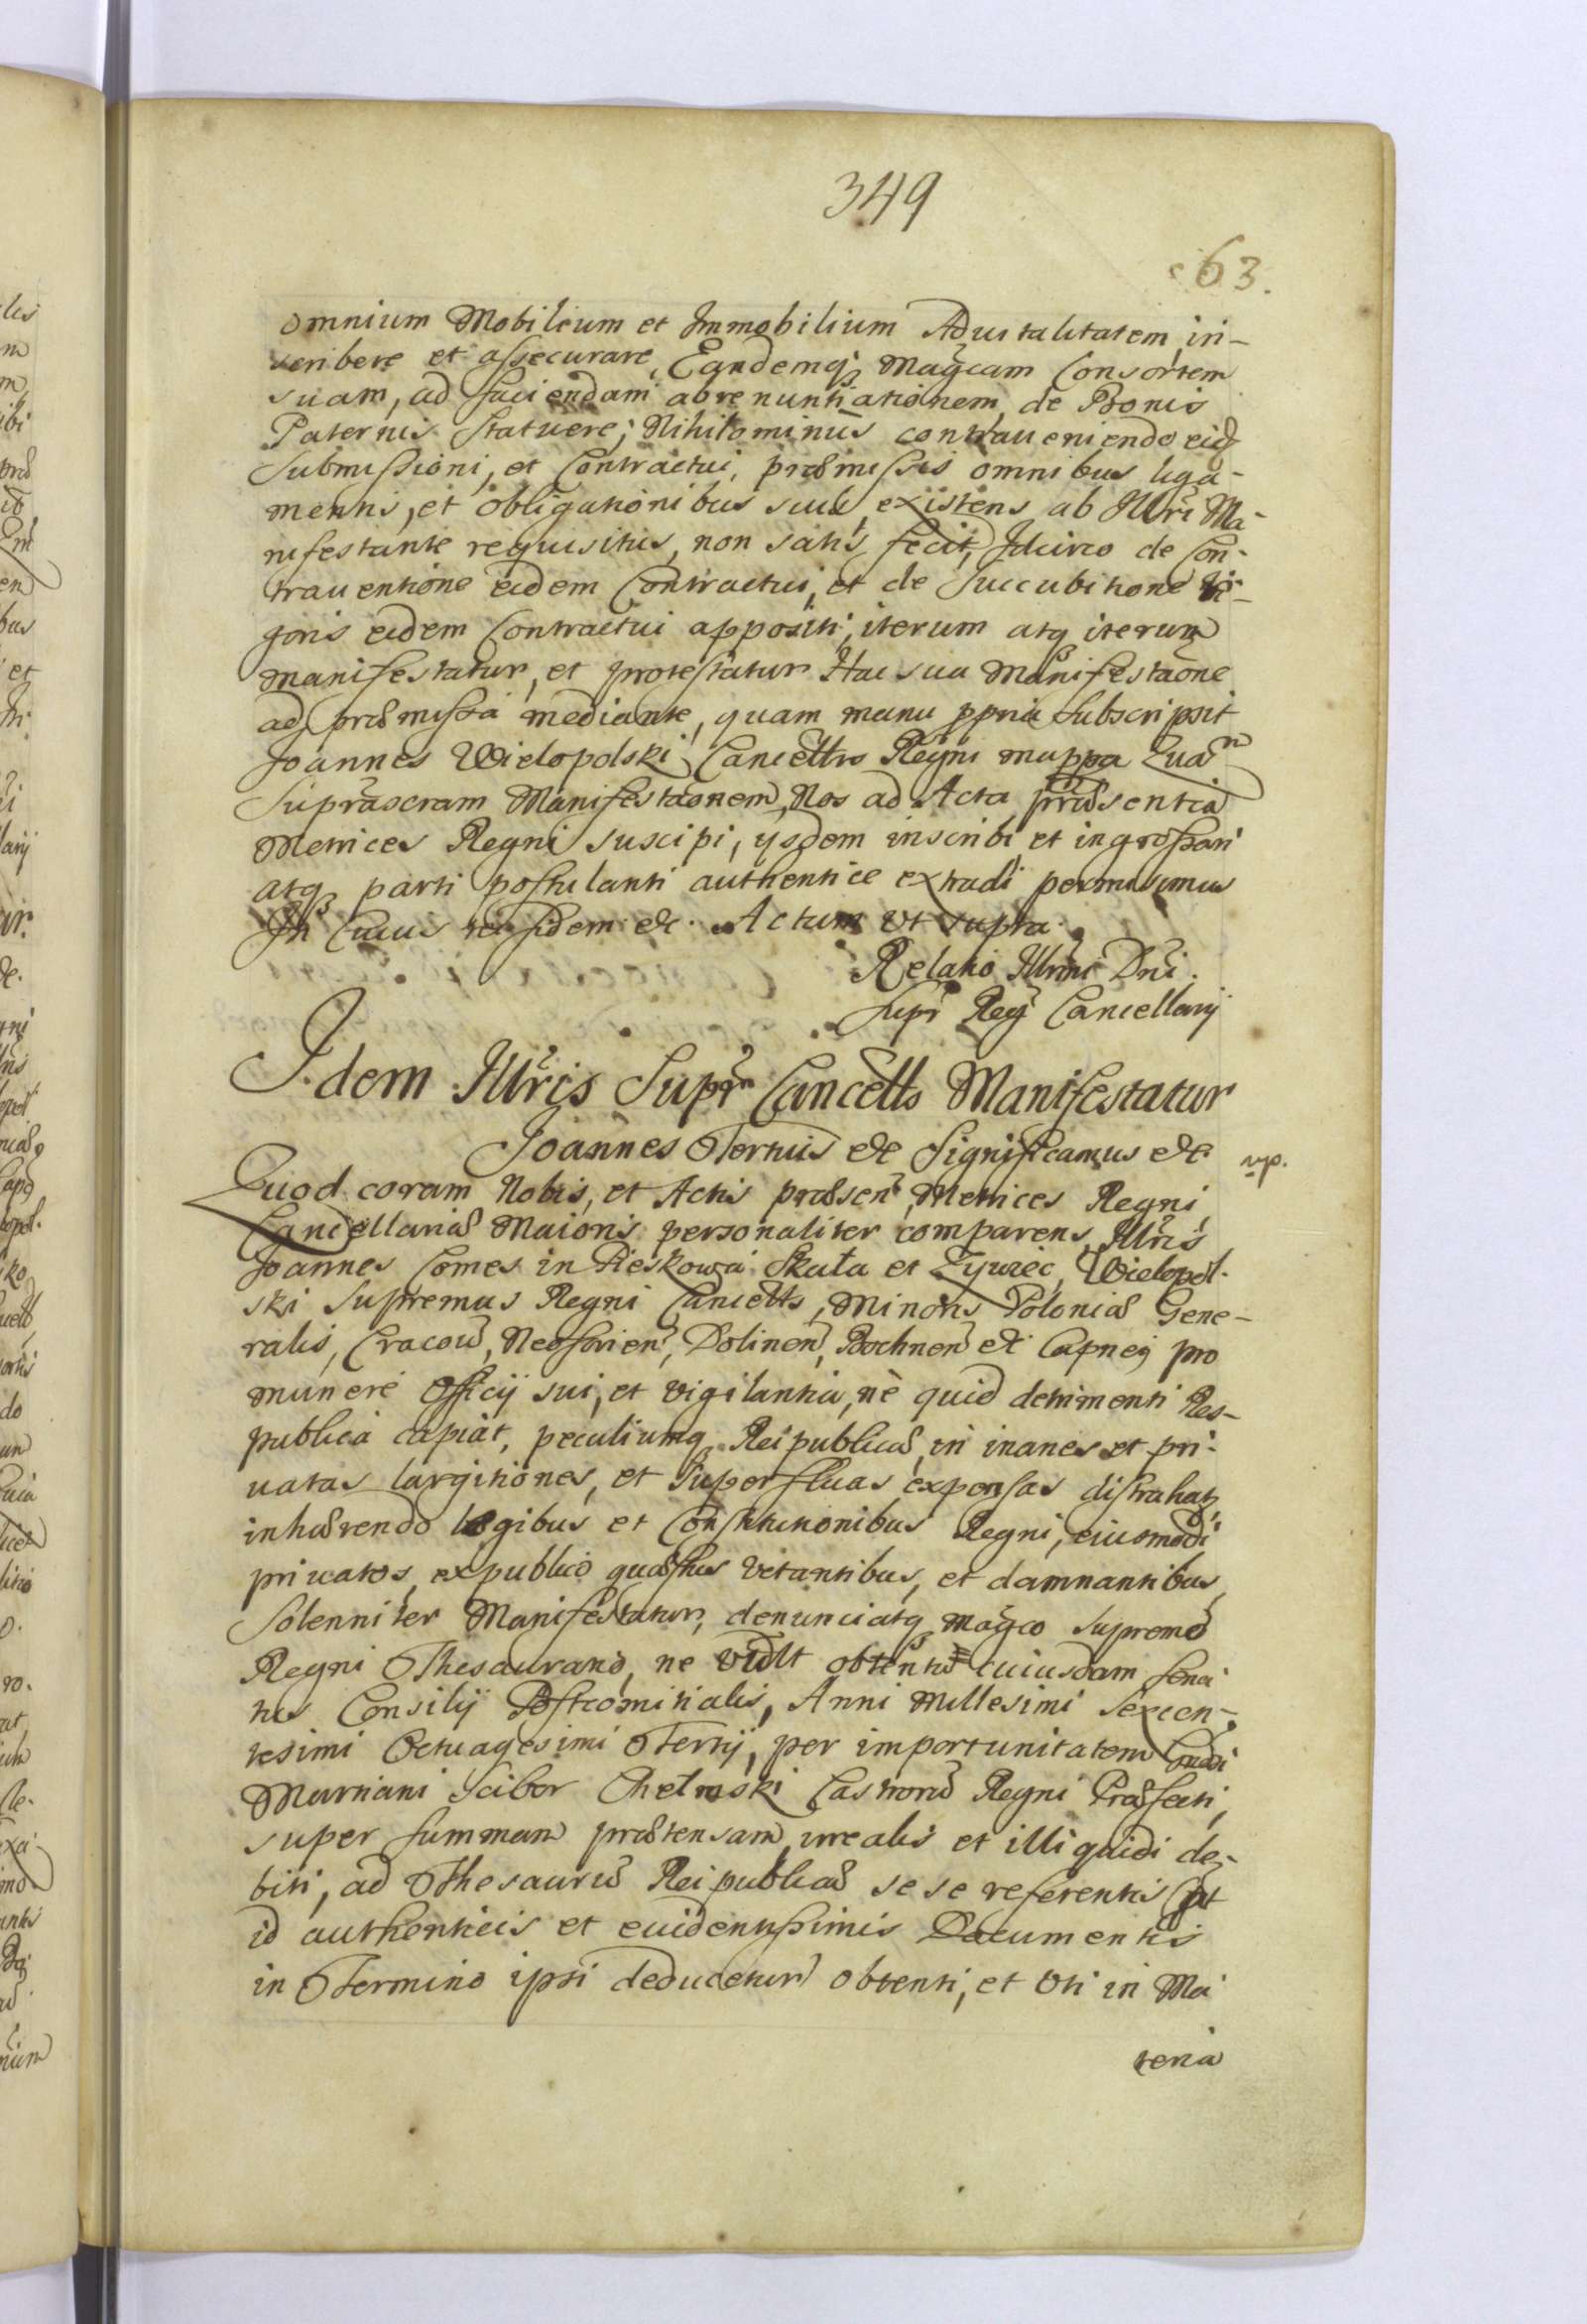 349
63.
omnium Mobilium et Immobilium Aduitalitatem in-
scribere et assecurare, Eandemq́ Mag̃cam Consortem
suam, ad faciendam abrenuntiationem de Bonis
Paternis statuere; Nihilominus contraueniendo eid̃
Submissioni, et Contractui, præmissis omnibus liga-
mentis, et obligationibus suis, existens ab Illr̃i Ma-
nifestante requisitus, non satis fecit, Idcirco de Con-
trauentione eidem Contractui, et de Succubitione Vi-
goris eidem Contractui appositi, iterum atq iterum
manifestatur, et protestatur Hac sua Manifestaõne
ad præmissa mediante, quam manu ppria Subscripsit
Joannes Wielopolski Cancellrs Regni mappa Quã
Suprascram Manifestaõnem, Nos ad Acta præsentia
Metrices Regni suscipi, ysdem inscribi et ingrossari
atq parti postulanti authentice extradi permisimus
In Cuius rei fidem etc. Actum vt supra.
Relatio Illr̃mi Dñi.
Supr̃ Reg̃ Cancellarij
Idem Illr̃is Supr̃m Cancells Manifestatur
Joannes Tertius etc Significamus etc
vp.
Quod coram Nobis, et Actis præsen̄ Metrices Regni
Cancellariæ Maioris personaliter comparens, Illr̃is
Joannes Comes in Pieskowa Skała et Zywiec, Wielopol-
ski Supremus Regni Cancells, Minoris Poloniæ Gene-
ralis, Cracoũ, Neoforien̄, Dolinen̄, Bochnen̄ etc Capneq pro
munere Officij sui, et vigilantia, nè quid detrimenti Res-
publica capiat, peculiumq Reipublicæ in inanes et pri-
uatas largitiones, et superfluas expensas distrahatr,
inhærendo legibus et Constitutionibus Regni, eiusmodi
priuatos, ex publico quæstus vetantibus, et damnantibus,
Solenniter Manifestatur, denunciatq mag̃co Supremo
Regni Thesaurario, ne vult obtentu cuiusdam Sena
tus Consilij Postcomitialis, Anni Millesimi Sexcen-
tesimi Octuagesimi Tertij, per importunitatem Gñdi
Martiani Scibor Chełmski Castrorũ Regni Præfecti,
super summam prætensam, irrealis et illiquidi de-
biti, ad Thesaurũ Reipublicæ sese referentis (ut
id authenticis et euidentissimis Documentis
in Termino ipsi deducetur) obtenti, et vti in Ma
teria